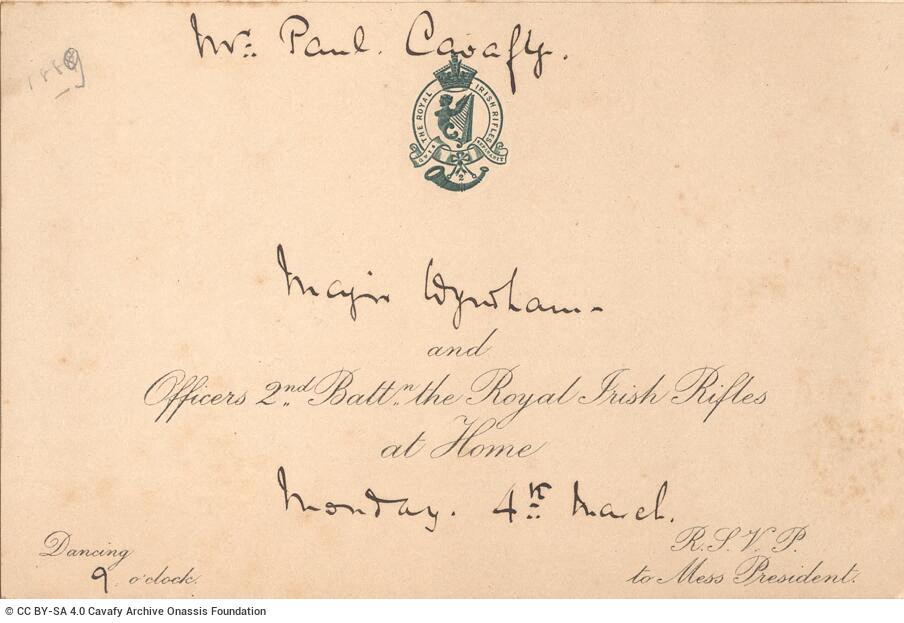 Mr. Paul. Cavafy.
1889
THE ROYAL IRISH RIFLES
2
Major Wyndham
and
Officers 2nd Battn. the Royal Irish Rifles
at Home
Monday. 4th March.
Dancing
9 o'clock.
R.S.V.P.
to Mess President.
© CC BY-SA 4.0 Cavafy Archive Onassis Foundation